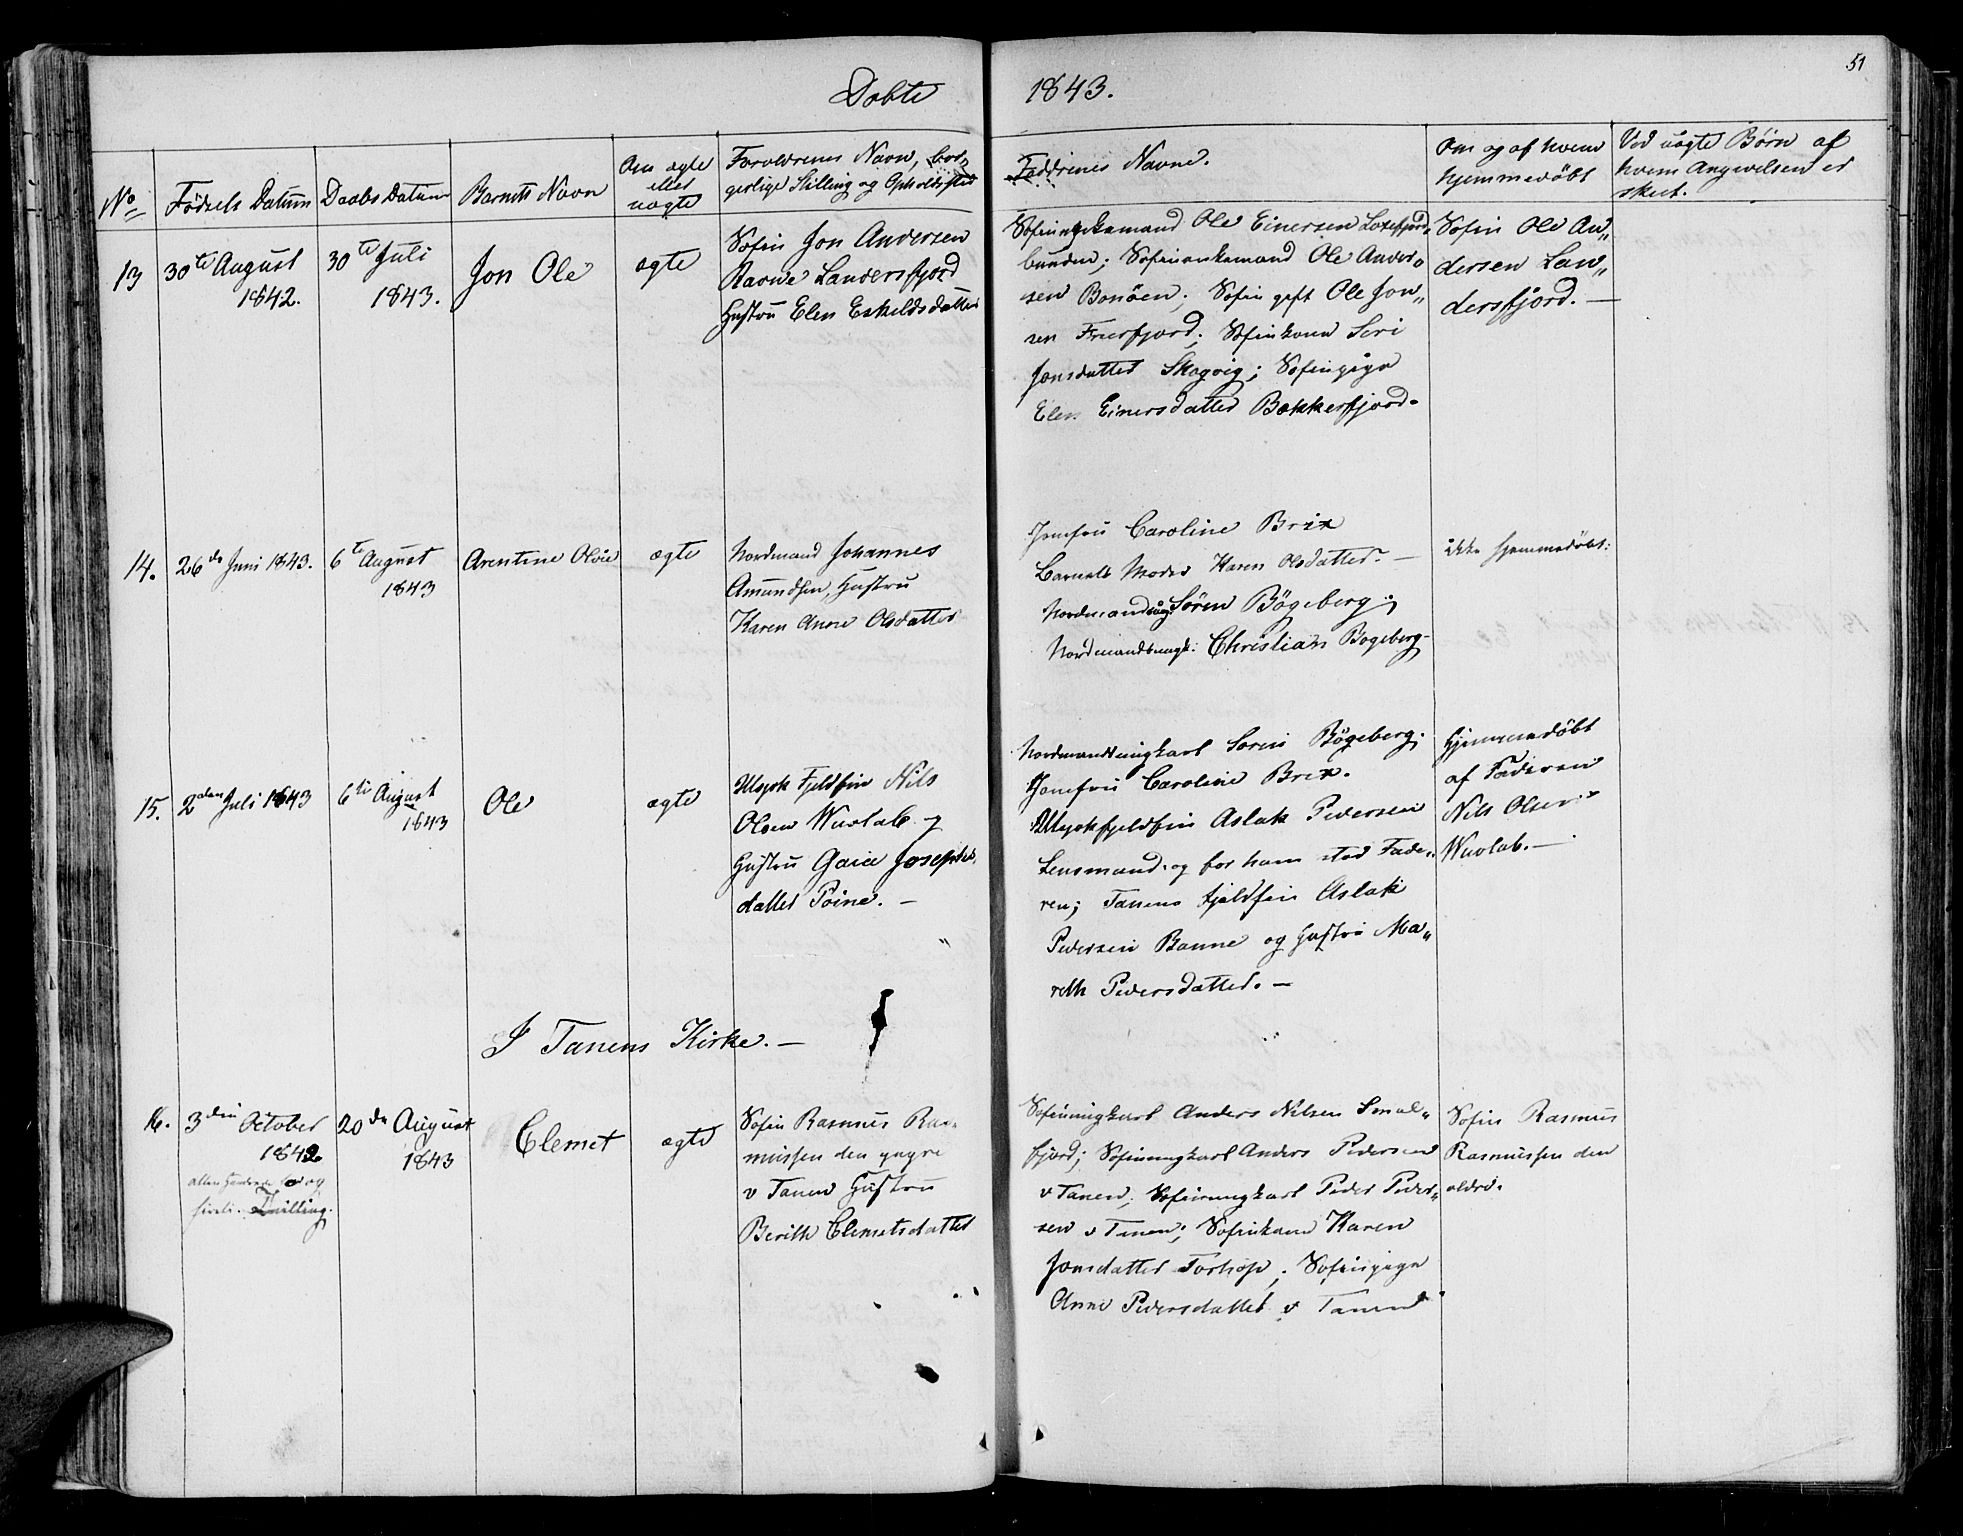 Døbte 1843.
51
No
Fødsels Datum
Daabs Datum
Barnets Navn
Om ægte
eller
uægte
Forældrenes Navn, bor-
gerlige Stilling og Opholdssted
Faddrenes Navne.
Om og af hvem
hjemmedøbt
Ved uægte Børn af
hvem Angivelsen er
skeet.
13
30te August
1842.
30te Juli
1843.
Jon Ole
ægte
Søfin Jon Andersen
Landersfjord
Hustru Elen Eskildsdatter
Ole Einersen
bunden; Ole Ander-
sen Bonøen; Søfin gift Ole Jon„
sen Frierfjord; Søfinkone Siri
Jonsdatter Skogvig; Søfinpige
Elen Einersdatter Bekkerfjord.
Søfin Ole An„
dersen Lan„
dersfjord. —
14.
26de Juni 1843.
6te August
1843
Arentine Olvie
ægte
Nordmand Johannes
Amundsen, Hustru
Karen Anne Olsdatter
Jomfru Caroline Brix
Barnets Moder Karen Olsdatter. —
Søren Bøgeberg;
Nordmandsungk: Christian Bøgeberg
ikke hjemmedøbt:
15.
2den Juli 1843
6te August
1843
Ole
ægte
Fjeldfin Nils
Olsen Wuolab og
Hustru Gaia Josephs
datter Poine. —
Nordmandsungkarl Søren Bøgeberg.
Jomfru Caroline Brix.
Aslak Pedersen
Lensmand, og for ham stod Fade„
ren; Tanens fjeldfin Aslak
Pedersen Banne og Hustru Ma„
reth Pedersdatter. —
Hjemmedøbt
af Faderen
Nils Olsen
Wuolab. —
I Tanens Kirke. —
16.
3die October
1842
Tvilling.
20de August
1843
Clemet
ægte
Søfin Rasmus Ras-
mussen den yngre
v Tanen Hustru
Berith Clemetsdatter
Søfinungkarl Anders Nilsen Smal„
fjord; Søfinungkarl Anders Pedersen
v Tanen; Søfinungkarl Peder Peder„
sen v Tanen; Søfinkone Karen
Jonsdatter Torhop; Søfinpige
Anne Pedersdatter v Tanen
Søfin Rasmus
Rasmussen den
ældre.